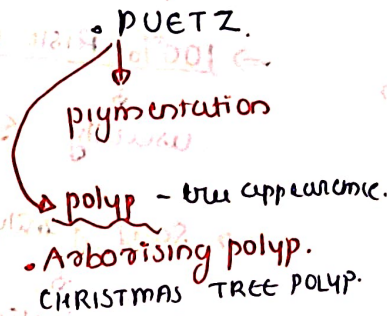 . PUETZ.
pigmentation
polyp - tree appearence.
. Arborising polyp.
CHRISTMAS TREE POLYP.